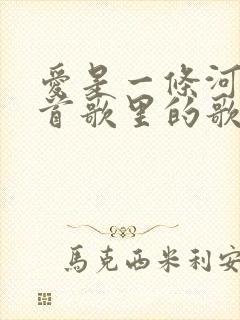 愛是一條河
首歌里的歌
馬克西米利安